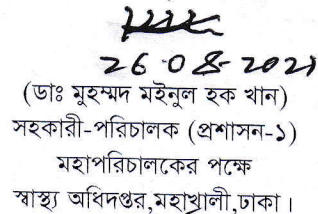 26-08-2021
(ডাঃ মুহম্মদ মইনুল হক খান)
সহকারী-পরিচালক (প্রশাসন-১)
মহাপরিচালকের পক্ষে
স্বাস্থ্য অধিদপ্তর,মহাখালী,ঢাকা।